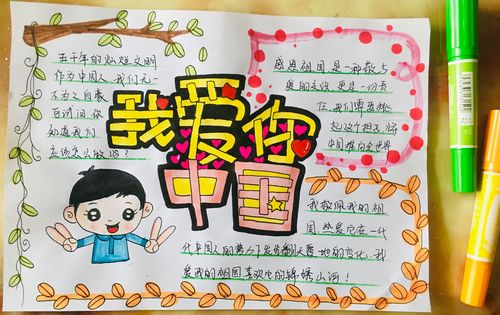 我爱你
中国
五千年的灿烂文明
作为中国人我们无一
不为之自豪
百诗问你
知道我们
应该怎么做吗？
感恩祖国是一种敬与
爱的交
更是一份责
任我们需要挑
起这个担子将
中国推向全世界
我敬佩我的祖
国
在一代
代中国人的
翻天覆地的变化、我
爱我的祖国喜欢它的锦绣山河！